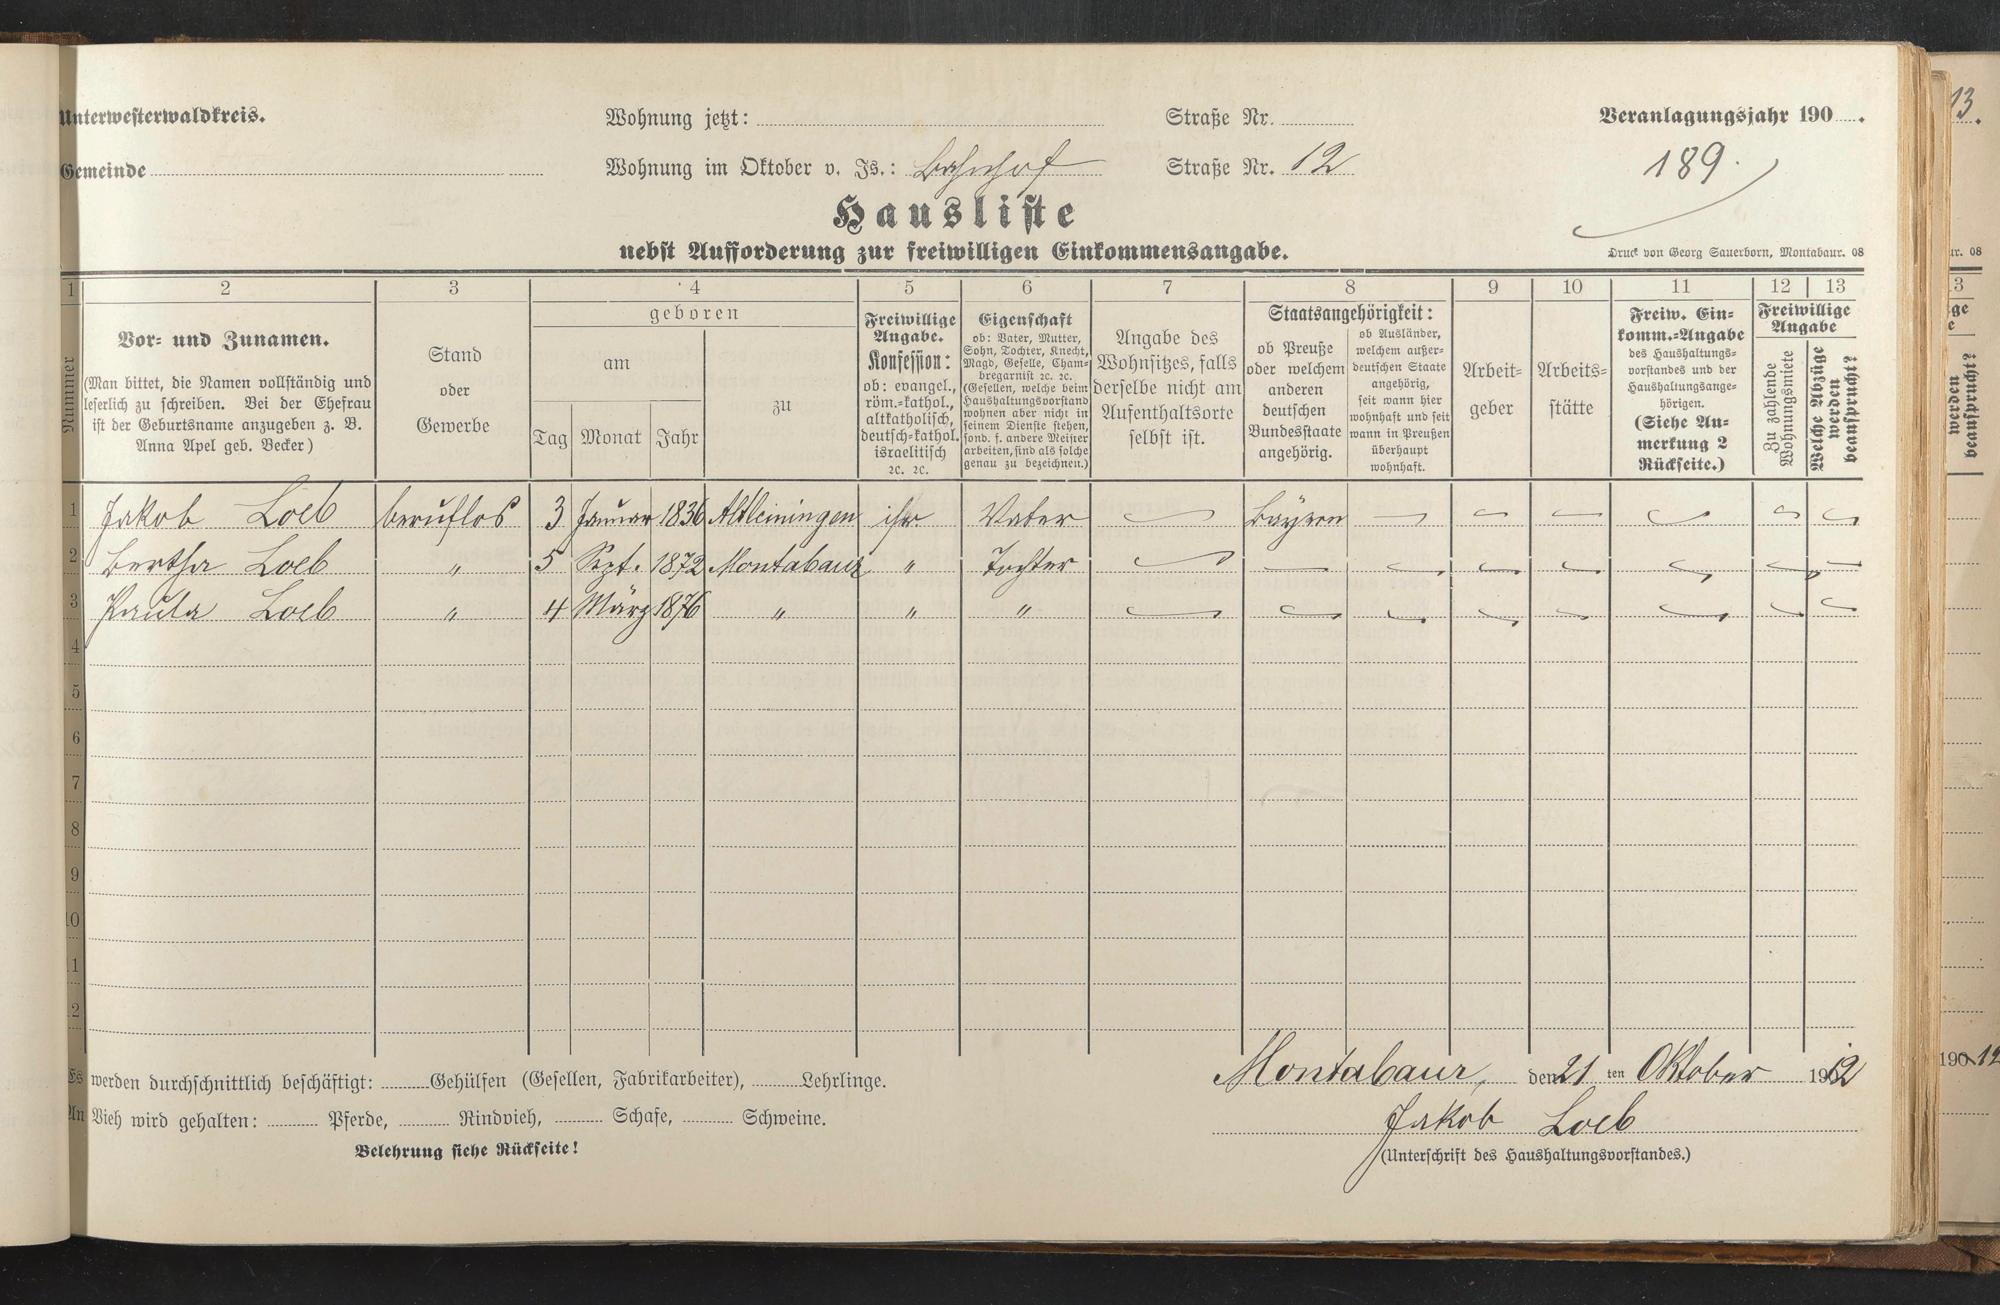 Unterwesterwaldkreis.
Wohnung jetzt: Straße Nr.
Veranlagungsjahr 190 .
Gemeinde
Wohnung im Oktober v. Js.: Bahnhof Straße Nr. 12
189.
Hausliste
nebst Aufforderung zur freiwilligen Einkommensangabe.
Druck von Georg Sauerborn, Montabaur. 08
1 2 3 4 5 6 7 8 9 10 11 12 13
Nummer
Vor- und Zunamen.
(Man bittet, die Namen vollständig und
leserlich zu schreiben. Bei der Ehefrau
ist der Geburtsname anzugeben z. B.
Anna Apel geb. Becker)
Stand
oder
Gewerbe
geboren
am
Tag Monat Jahr
zu
Freiwillige
Angabe.
Konfession:
ob: evangel.,
röm.-kathol.,
altkatholisch,
deutsch-kathol.
israelitisch
2c. 2c.
Eigenschaft
ob: Vater, Mutter,
Sohn, Tochter, Knecht,
Magd, Geselle, Cham-
bregarnist 2c. 2c.
(Gesellen, welche beim
Haushaltungsvorstand
wohnen aber nicht in
seinem Dienste stehen,
sond. f. andere Meister
arbeiten, sind als solche
genau zu bezeichnen.)
Angabe des
Wohnsitzes, falls
derselbe nicht am
Aufenthaltsorte
selbst ist.
Staatsangehörigkeit:
ob Preuße
oder welchem
anderen
deutschen
Bundesstaate
angehörig.
ob Ausländer,
welchem außer-
deutschen Staate
angehörig,
seit wann hier
wohnhaft und seit
wann in Preußen
überhaupt
wohnhaft.
Arbeit-
geber
Arbeits-
stätte
Freiw. Ein-
komm.-Angabe
des Haushaltungs-
vorstandes und der
Haushaltungsange-
hörigen.
(Siehe An-
merkung 2
Rückseite.)
Freiwillige
Angabe
Zu zahlende
Wohnungsmiete
Welche Abzüge
werden
beansprucht?
1 Jakob Loeb beruflos 3 Januar 1836 Altleiningen isr Vater Bayern
2 Bertha Loeb " 5 Sept. 1872 Montabaur " Tochter
3 Paula Loeb " 4 März 1876 " " "
4
5
6
7
8
9
10
11
12
Es werden durchschnittlich beschäftigt: Gehülfen (Gesellen, Fabrikarbeiter), Lehrlinge.
An Vieh wird gehalten: Pferde, Rindvieh, Schafe, Schweine.
Belehrung siehe Rückseite!
Montabaur, den 21 ten Oktober 1912
Jakob Loeb
(Unterschrift des Haushaltungsvorstandes.)
13.
ur. 08
3
ge
e
werden
beansprucht?
190 12